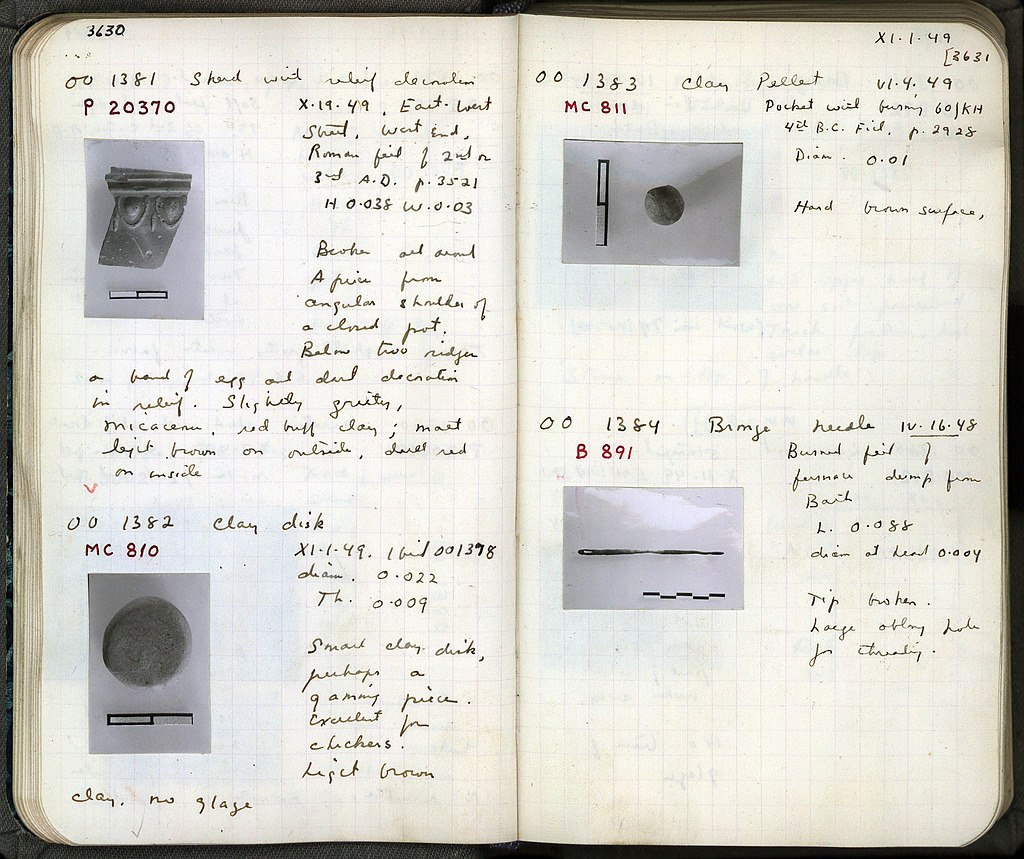 3630
OO 1381 Sherd with relief decoration
P 20370
X.19.49. East-West
Street, West End,
Roman fill of 2nd or
3rd A.D. p.3521
H 0.038 W.0.03
Broken all around
A piece from
angular shoulder of
a closed pot.
Below two ridges
a band of egg and dart decoration
in relief. Slightly gritty,
micaceous, red buff clay; matt
light brown on outside, dark red
on inside
OO 1382 Clay disk
MC 810
XI.1.49.
diam. 0.022
Th. 0.009
Small clay disk,
perhaps a
gaming piece.
Excellent for
checkers.
Light brown
clay, no glaze
XI.1.49
[3631
OO 1383 Clay Pellet VI.4.49
MC 811
Pocket with burning 60/KH
4th B.C. Fill, p. 2928
Diam. 0.01
Hard brown surface,
OO 1384 Bronze needle IV.16.48
B 891
Burned fill of
furnace dump from
Bath
L. 0.088
diam at head 0.004
Tip broken.
Large oblong hole
for threading.